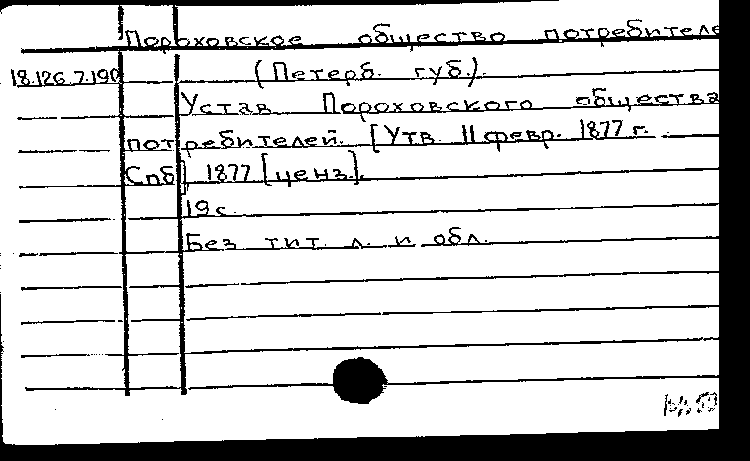 Пороховское общество потребителе
18.126.7.190 (Петерб. губ.).
Устав Пороховского общества
потребителей. [Утв. 11 февр. 1877 г.
Спб], 1877 [ценз.].
19 с.
Без тит. л. и обл.